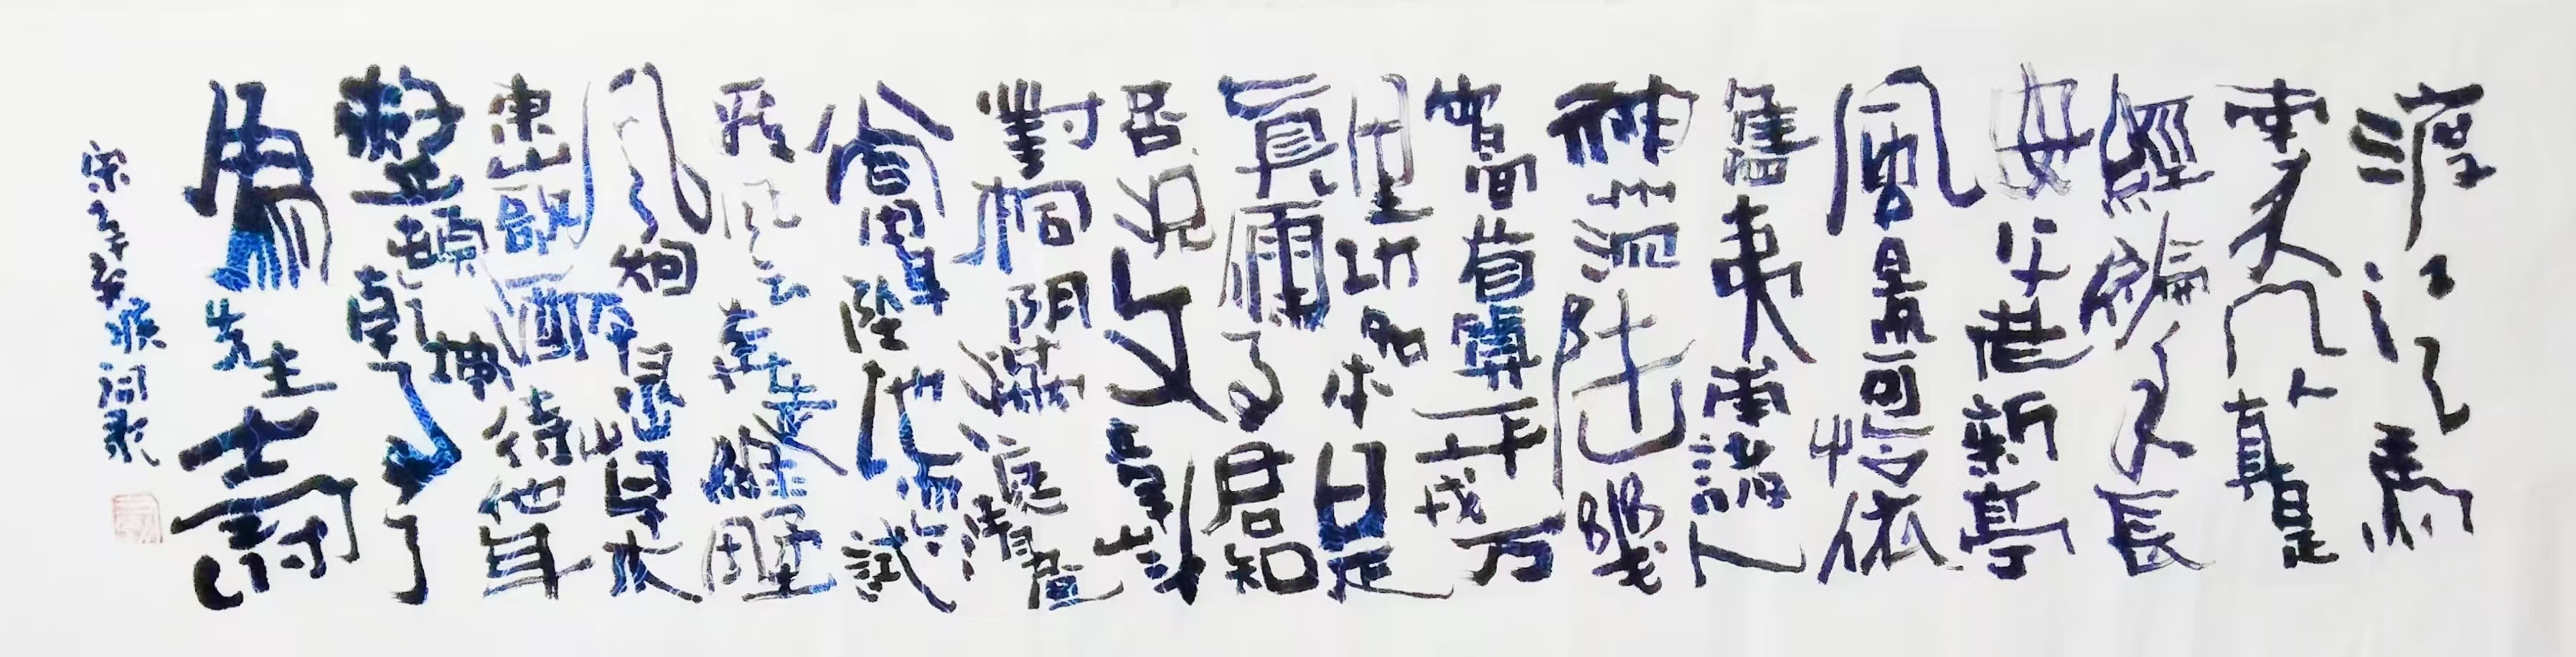 渡江天馬
南來几人真是
經綸手長
安父老新亭
風景可怜依
舊夷甫諸人
神州沉陸幾
曾回首算平戎万
里功名本是
真儒事君知
否況文章山斗
對桐陰滿庭清晝
當年墮地而今試
看風云奔走綠野
風烟平泉草木
東山歌酒待他年
整頓乾坤事了
為先生壽
宋辛棄疾詞